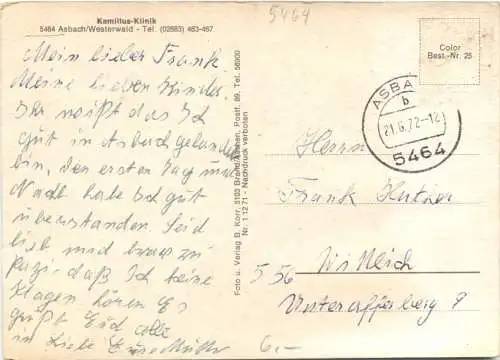 5464
Kamillus-Klinik
5464 Asbach/Westerwald - Tel. (02683) 463-467
Mein lieber Frank
Meine lieben Kinder
Ihr weißt das Ich
gut in Asbach gelandet
bin, den ersten Tag und
Nacht habe Ich gut
überstanden. Seid
lieb und brav zu
daß Ich keine
Klagen hören Es
grüßt Euch alle
in Liebe
Foto u. Verlag B. Korr, 5103 Brand/Aachen, Postf. 85, Tel. 58000
Nr. 1 12 71 - Nachdruck verboten
Color
Best.-Nr. 25
ASBA
b
21.6.72-12
5464
Herrn
Frank
556 Wittlich
6.-